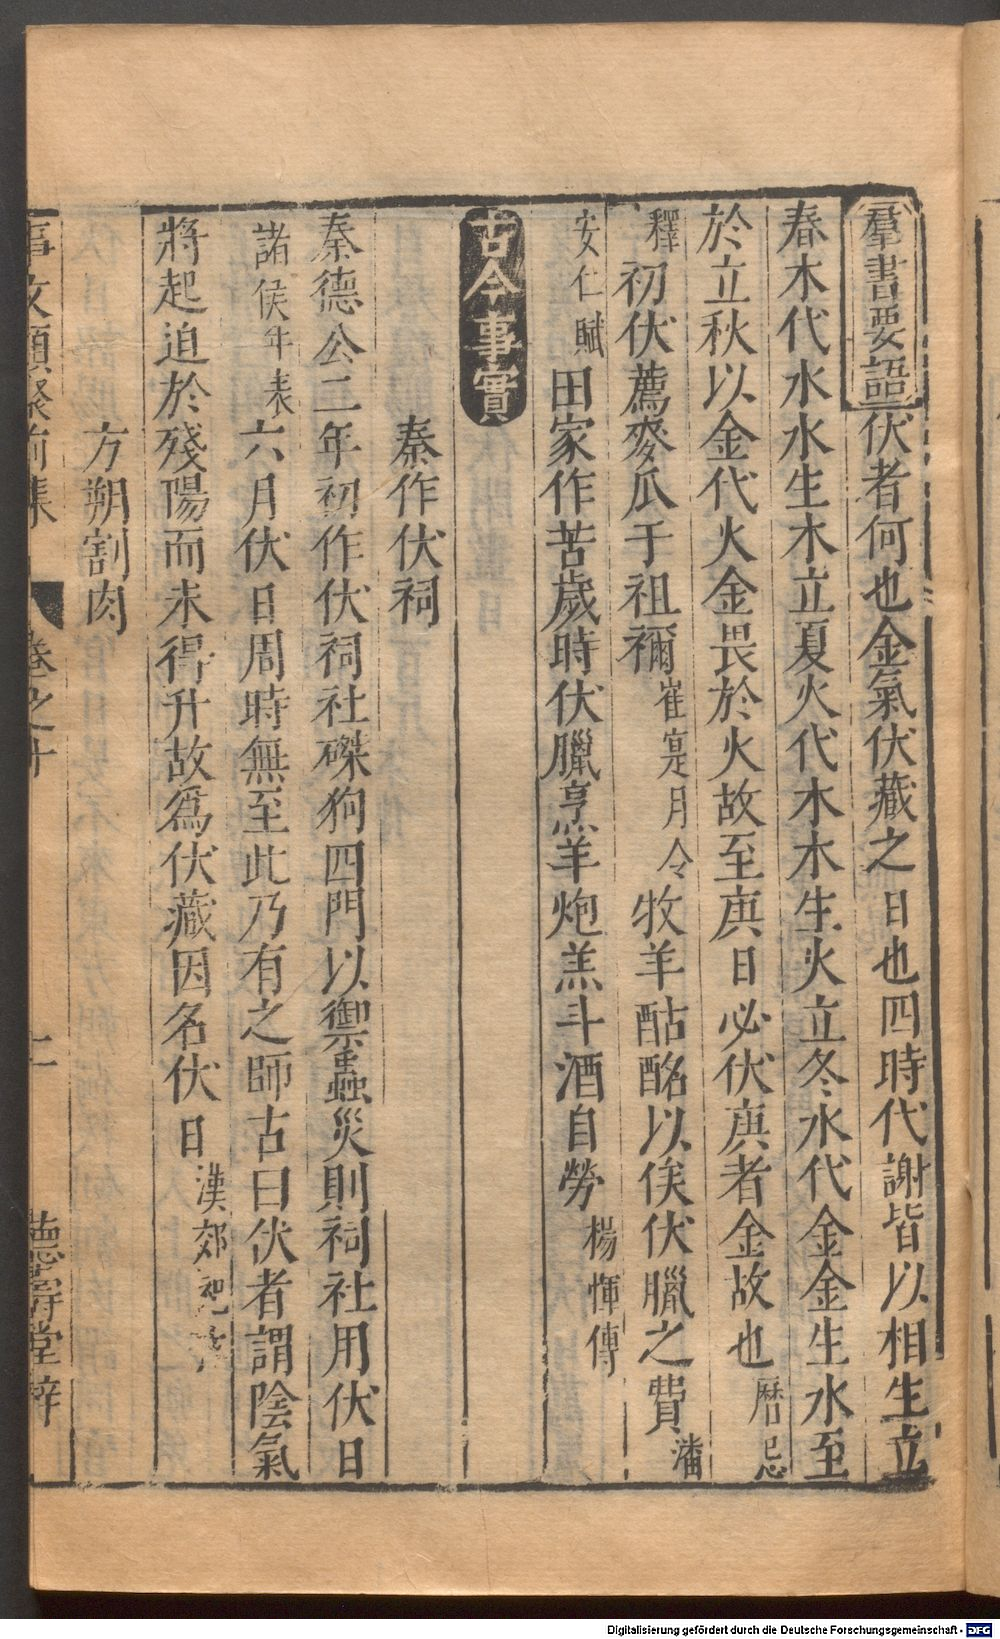 羣書要語伏者何也金氣伏藏之日也四時代謝皆以相生立
春木代水水生木立夏火代木木生火立冬水代金金生水至
於立秋以金代火金畏於火故至庚日必伏庚者金故也曆忌
釋初伏薦麥瓜于祖禰崔寔月令牧羊酤酪以俟伏臘之費潘
安仁賦田家作苦歲時伏臘烹羊炮羔斗酒自勞楊惲傳
古今事實
秦作伏祠
秦德公二年初作伏祠社磔狗四門以禦蠱災則祠社用伏日
諸侯年表六月伏日周時無至此乃有之師古曰伏者謂陰氣
將起迫於殘陽而未得升故爲伏藏因名伏日漢郊祀
方朔割肉
事文類聚前集 卷之十 德壽堂梓
Digitalisierung gefördert durch die Deutsche Forschungsgemeinschaft - DFG